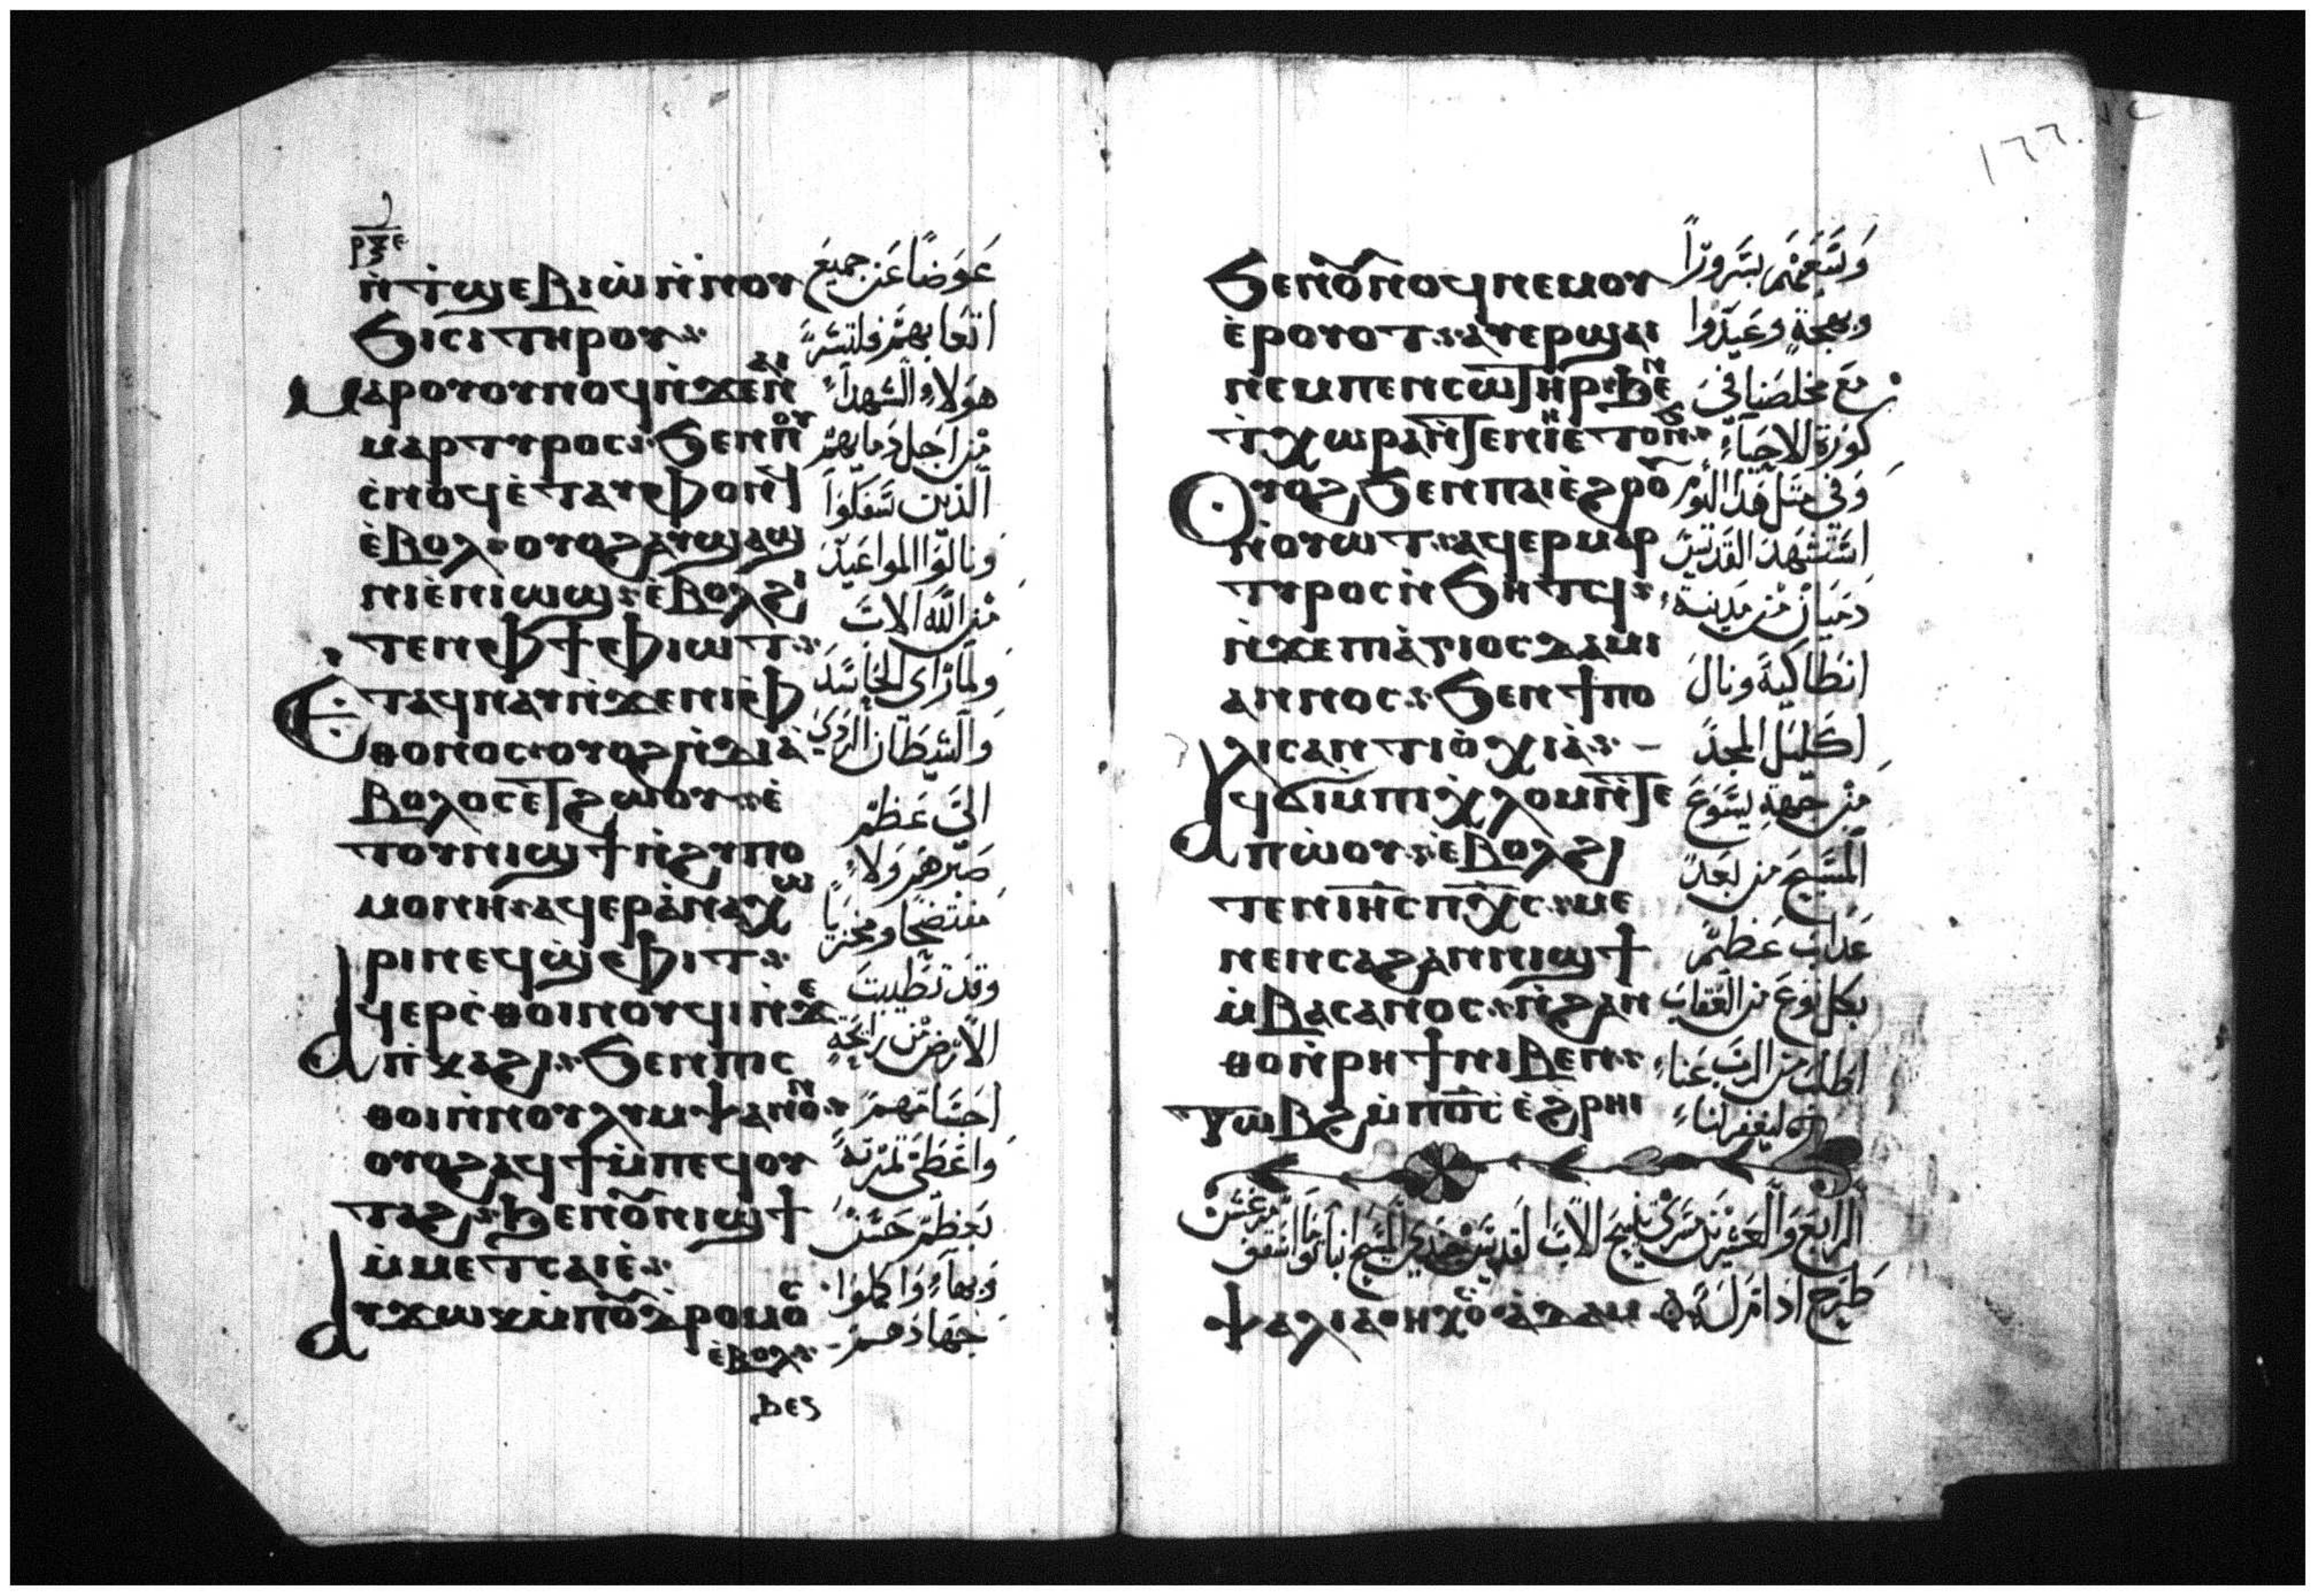 ⲣⲝⲉ
ⲛ̀ⲧ̀ϣⲉⲃⲓⲱ̀ ⲛ̀ⲛⲟⲩ
ϧⲓⲥⲓ ⲧⲏⲣⲟⲩ
ⲙⲁⲣⲟⲩⲟⲩⲛⲟϥ ⲛ̀ϫⲉ ⲛⲁⲓ
ⲙⲁⲣⲧⲩⲣⲟⲥ ϧⲉⲛ ⲡⲟⲩ
ⲥ̀ⲛⲟϥ ⲉ̀ⲧⲁⲩⲫⲟⲛϥ
ⲉ̀ⲃⲟⲗ ⲟⲩⲟϩ ⲁⲩϣⲁϣ
ⲛⲓ ⲉ̀ⲛⲓⲱϣ ⲉ̀ⲃⲟⲗϩⲓ
ⲧⲉⲛ ⲫϯ ⲫⲓⲱⲧ
ⲉⲧⲁϥⲛⲁⲩ ⲛ̀ϫⲉ ⲛⲓⲉⲫ
ⲑⲟⲛⲟⲥ ⲟⲩⲟϩ ⲛ̀ⲇⲓⲁ̀
ⲃⲟⲗⲟⲥ ⲉⲧϩⲱⲟⲩ ⲉ̀
ⲧⲟⲩⲛⲓϣϯ ⲛ̀ϩⲩⲡⲟ
ⲙⲟⲛⲏ ⲁϥⲉⲣⲁ̀ⲛⲁⲭⲱ
ⲣⲓⲛ ⲉϥϣ̀ⲫⲓⲧ
ⲁϥⲉⲣⲥ̀ⲑⲟⲓⲛⲟⲩϥⲓ ⲛ̀ϫⲉ
ⲡⲕⲁϩⲓ ϧⲉⲛ ⲡⲓⲥ
ⲑⲟⲓ ⲛ̀ⲛⲟⲩⲗⲩⲙⲯⲁⲛⲟⲛ
ⲟⲩⲟϩ ⲁϥϯ ⲙ̀ⲡⲉϥⲟⲩ
ⲧⲁϩ ϧⲉⲛ ⲟⲩⲛⲓϣϯ
ⲙ̀ⲙⲉⲧⲥⲁⲓⲉ̀
ⲁⲩϫⲱⲕ ⲙ̀ⲡⲟⲩⲇⲣⲟⲙⲟⲥ
ⲉ̀ⲃⲟⲗ
ϧⲉⲛ
عوضاً عن جميع
اتعابهم فلتسر
هولاء الشهداء
من اجل دمايهم
الذين سفكوا
ونالوا المواعيد
من الله الاب
ولما رأى الحاسد
والشيطان الردي
الى عظم
صبر هولاء
مفتضحا ومخزيا
وقد تطيبت
الارض من رايحة
اجسادهم
واعطى ثمرته
بعظم حسن
وبهاء واكملوا
جهادهم
١٦٦
ϧⲉⲛ ⲟⲩⲟⲩⲛⲟϥ ⲛⲉⲙ ⲟⲩ
ⲉ̀ⲣⲟⲩⲟⲧ ⲁⲩⲉⲣϣⲁⲓ
ⲛⲉⲙ ⲡⲉⲛⲥⲱⲧⲏⲣ ϧⲉⲛ
ⲧ̀ⲭⲱⲣⲁ ⲛ̀ⲧⲉ ⲛⲏⲉⲧⲟⲛϧ
ⲟⲩⲟϩ ϧⲉⲛ ⲡⲁⲓⲉ̀ϩⲟⲟⲩ
ⲛ̀ⲟⲩⲱⲧ ⲁϥⲉⲣⲙⲁⲣ
ⲧⲩⲣⲟⲥ ⲛ̀ϧⲏⲧϥ
ⲛ̀ϫⲉ ⲡⲓⲁ̀ⲅⲓⲟⲥ ⲇⲁⲙⲓ
ⲁⲛⲛⲟⲥ ϧⲉⲛ ϯⲡⲟ
ⲗⲓⲥ ⲁⲛⲧⲓⲟ̀ⲭⲓⲁ̀
ⲁϥϭⲓ ⲙ̀ⲡⲓⲭ̀ⲗⲟⲙ ⲛ̀ⲧⲉ
ⲡⲱ̀ⲟⲩ ⲉ̀ⲃⲟⲗϩⲓ
ⲧⲉⲛ ⲓⲏⲥ ⲡⲭⲥ ⲙⲉ
ⲛⲉⲛⲥⲁ ϩⲁⲛⲛⲓϣϯ
ⲙ̀ⲃⲁⲥⲁⲛⲟⲥ ⲛ̀ϩⲁⲛ
ⲑⲟ ⲛ̀ⲣⲏϯ ⲛⲓⲃⲉⲛ
ⲧⲱⲃϩ ⲙ̀ⲡⲟ̅ⲥ̅ ⲉ̀ϩⲣⲏⲓ
ⲯⲁⲗⲓ ⲁⲟⲏⲭⲟⲥ ⲁ̀ⲇⲁⲙ
وتنعمهم بسرورا
وبهجة وعيدوا
مع مخلصنا في
كورة الاحياء
وفي مثل هذا اليوم
استشهد القديس
دميان من مدينة
انطاكية ونال
اكليل المجد
من جهة يسوع
المسيح من بعد
عذاب عظيم
بكل نوع من العقاب
اطلب من الرب عنا
ليغفر لنا
طرح ادام له